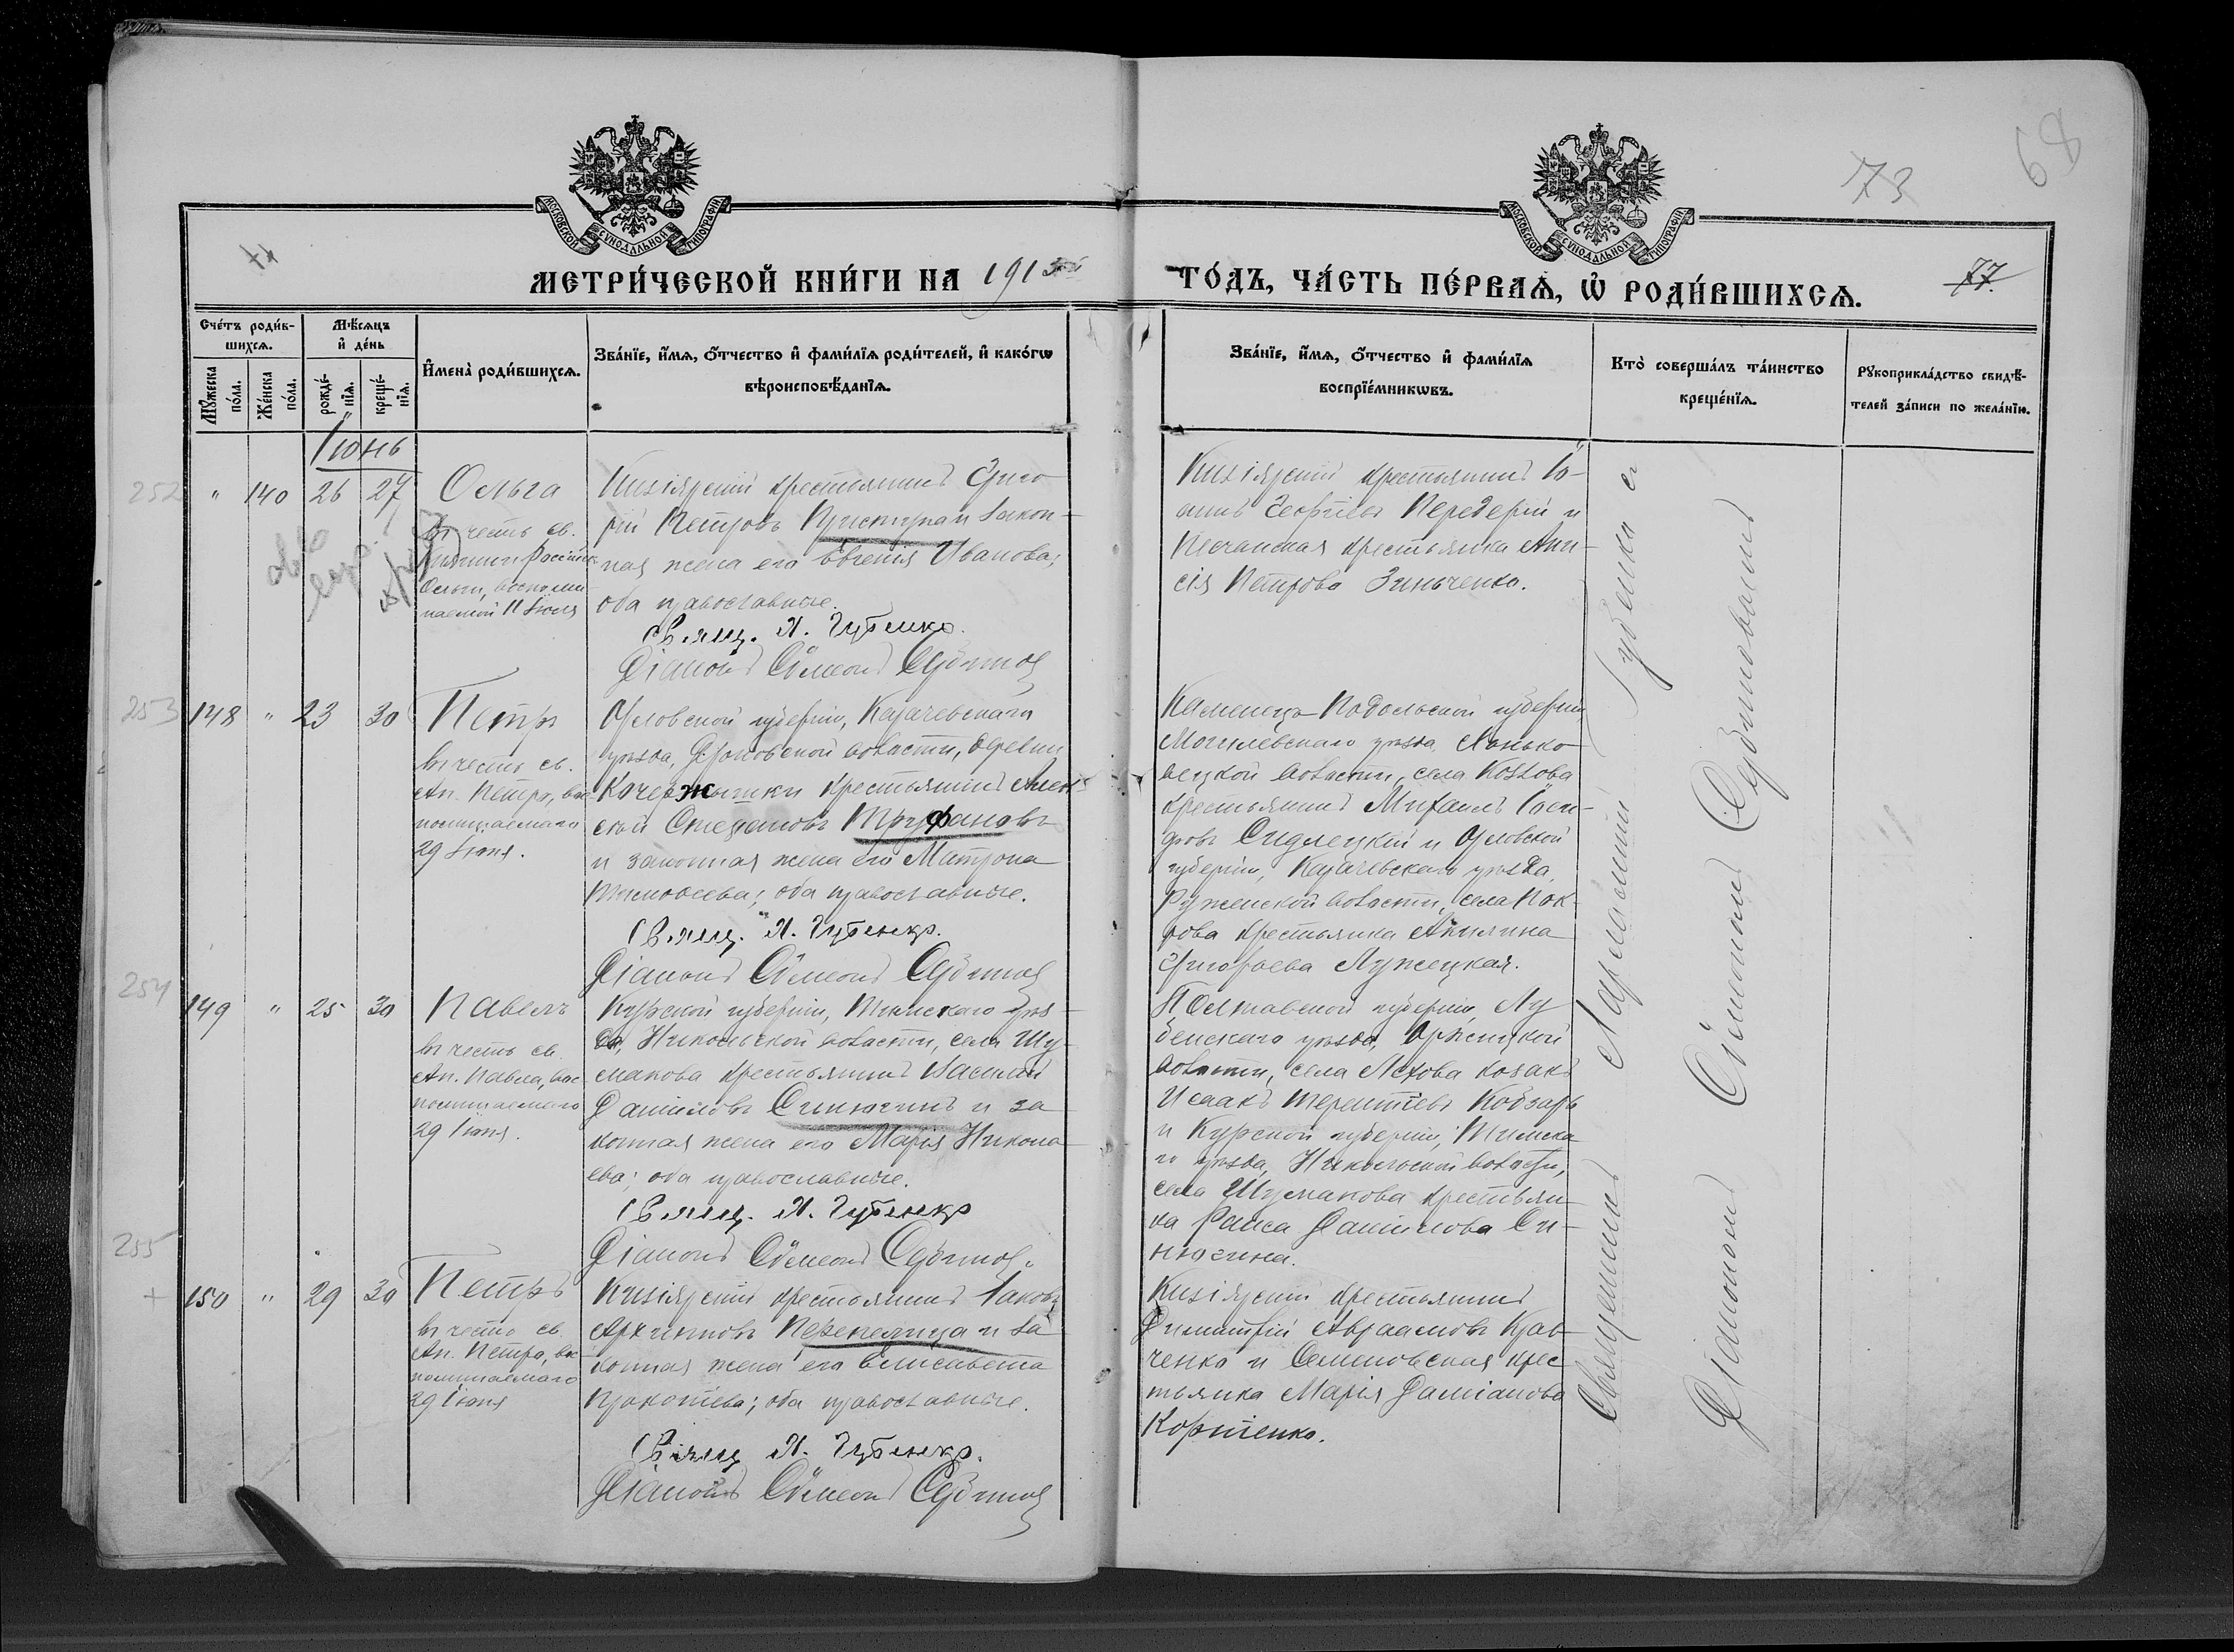 73
68
77
МОСКОВСКОЙ СѴНОДАЛЬНОЙ ТИПОГРАФІИ
МОСКОВСКОЙ СѴНОДАЛЬНОЙ ТИПОГРАФІИ
МЕТРИ́ЧЕСКОЙ КНИ́ГИ НА 1915
ГО́ДЪ, ЧА́СТЬ ПЕ́РВАѦ, Ѡ РОДИ́ВШИХСѦ.
Сче́тъ роди́в-
шихсѧ.
Мꙋ́жеска по́ла.
Же́нска по́ла.
Мѣ́сѧцъ
и де́нь
рожде́-
нїѧ.
креще́-
нїѧ.
Имена̀ роди́вшихсѧ.
Зва́нїе, и́мѧ, о́тчество и фами́лїѧ роди́телей, и како́гѡ
вѣроисповѣ́данїѧ.
Зва́нїе, и́мѧ, о́тчество и фами́лїѧ
воспрїе́мникѡвъ.
Кто̀ соверша́лъ та́инство
креще́нїѧ.
Рꙋкоприкла́дство свидѣ́-
телей за́писи по жела́нїю.
Іюнь
252 " 140 26 27 Ольга
въ честь св.
Княгини Россійск
Ольги, воспоми
наемой 11 Іюля
Кизіярскій крестьянинъ Григо
рій Петровъ Прискупа и закон-
ная жена его Евгенія Иванова;
оба православные.
Свящ. Л. Губенко.
Діаконъ Сѵмеонъ
Кизіярскій крестьянинъ Іо-
аннъ Георгіевъ Передерій и
Песчанская крестьянка Ани-
сія Петрова Зинченко.
253 148 " 23 30 Петръ
въ честь св.
Ап. Петра, вос
поминаемаго
29 Іюня.
Орловской губерніи, Карачевскаго
уѣзда, волости, деревни
крестьянинъ Алек
сѣй Стефановъ Труфановъ
и законная жена его Матрона
Тимофеева; оба православные.
Свящ. Л. Губенко.
Діаконъ Сѵмеонъ
Каменецъ-Подольской губерніи
Могилевскаго уѣзда
вецкой волости, села Козлова
крестьянинъ Михаилъ
Сидлецкій и Орловской
губерніи, Карачевскаго уѣзда,
Руженской волости, села Пок-
рова крестьянка Акилина
Григорьева Лужецкая.
254 149 " 25 30 Павелъ
въ честь св.
Ап. Павла, вос
поминаемаго
29 Іюня.
Курской губерніи, Тимскаго уѣз-
да, Никольской волости, села Шу-
макова крестьянинъ Василій
Даниловъ Синюгинъ и за
конная жена его Марія Никола
ева; оба православные.
Свящ. Л. Губенко
Діаконъ Сѵмеонъ
Полтавской губерніи, Лу
бенскаго уѣзда, Оржицкой
волости, села козакъ
Исаакъ Терентіевъ Кобзарь
и Курской губерніи, Тимска
го уѣзда, Никольской волости,
села Шумакова крестьян
ка Раиса Данилова Си-
нюгина.
255 150 " 29 30 Петръ
въ честь св.
Ап. Петра, вос
поминаемаго
29 Іюня
Кизіярскій крестьянинъ Іаковъ
Архиповъ Перепелица и за
конная жена его Елисавета
Прокопіева; оба православные.
Свящ Л. Губенко.
Діаконъ Сѵмеонъ
Кизіярскій крестьянинъ
Димитрій Авраамовъ Крав-
ченко и Семеновская крес
тьянка Марія Даміанова
Корніенко.
Священникъ Губенко съ
Діакономъ Сѵмеономъ